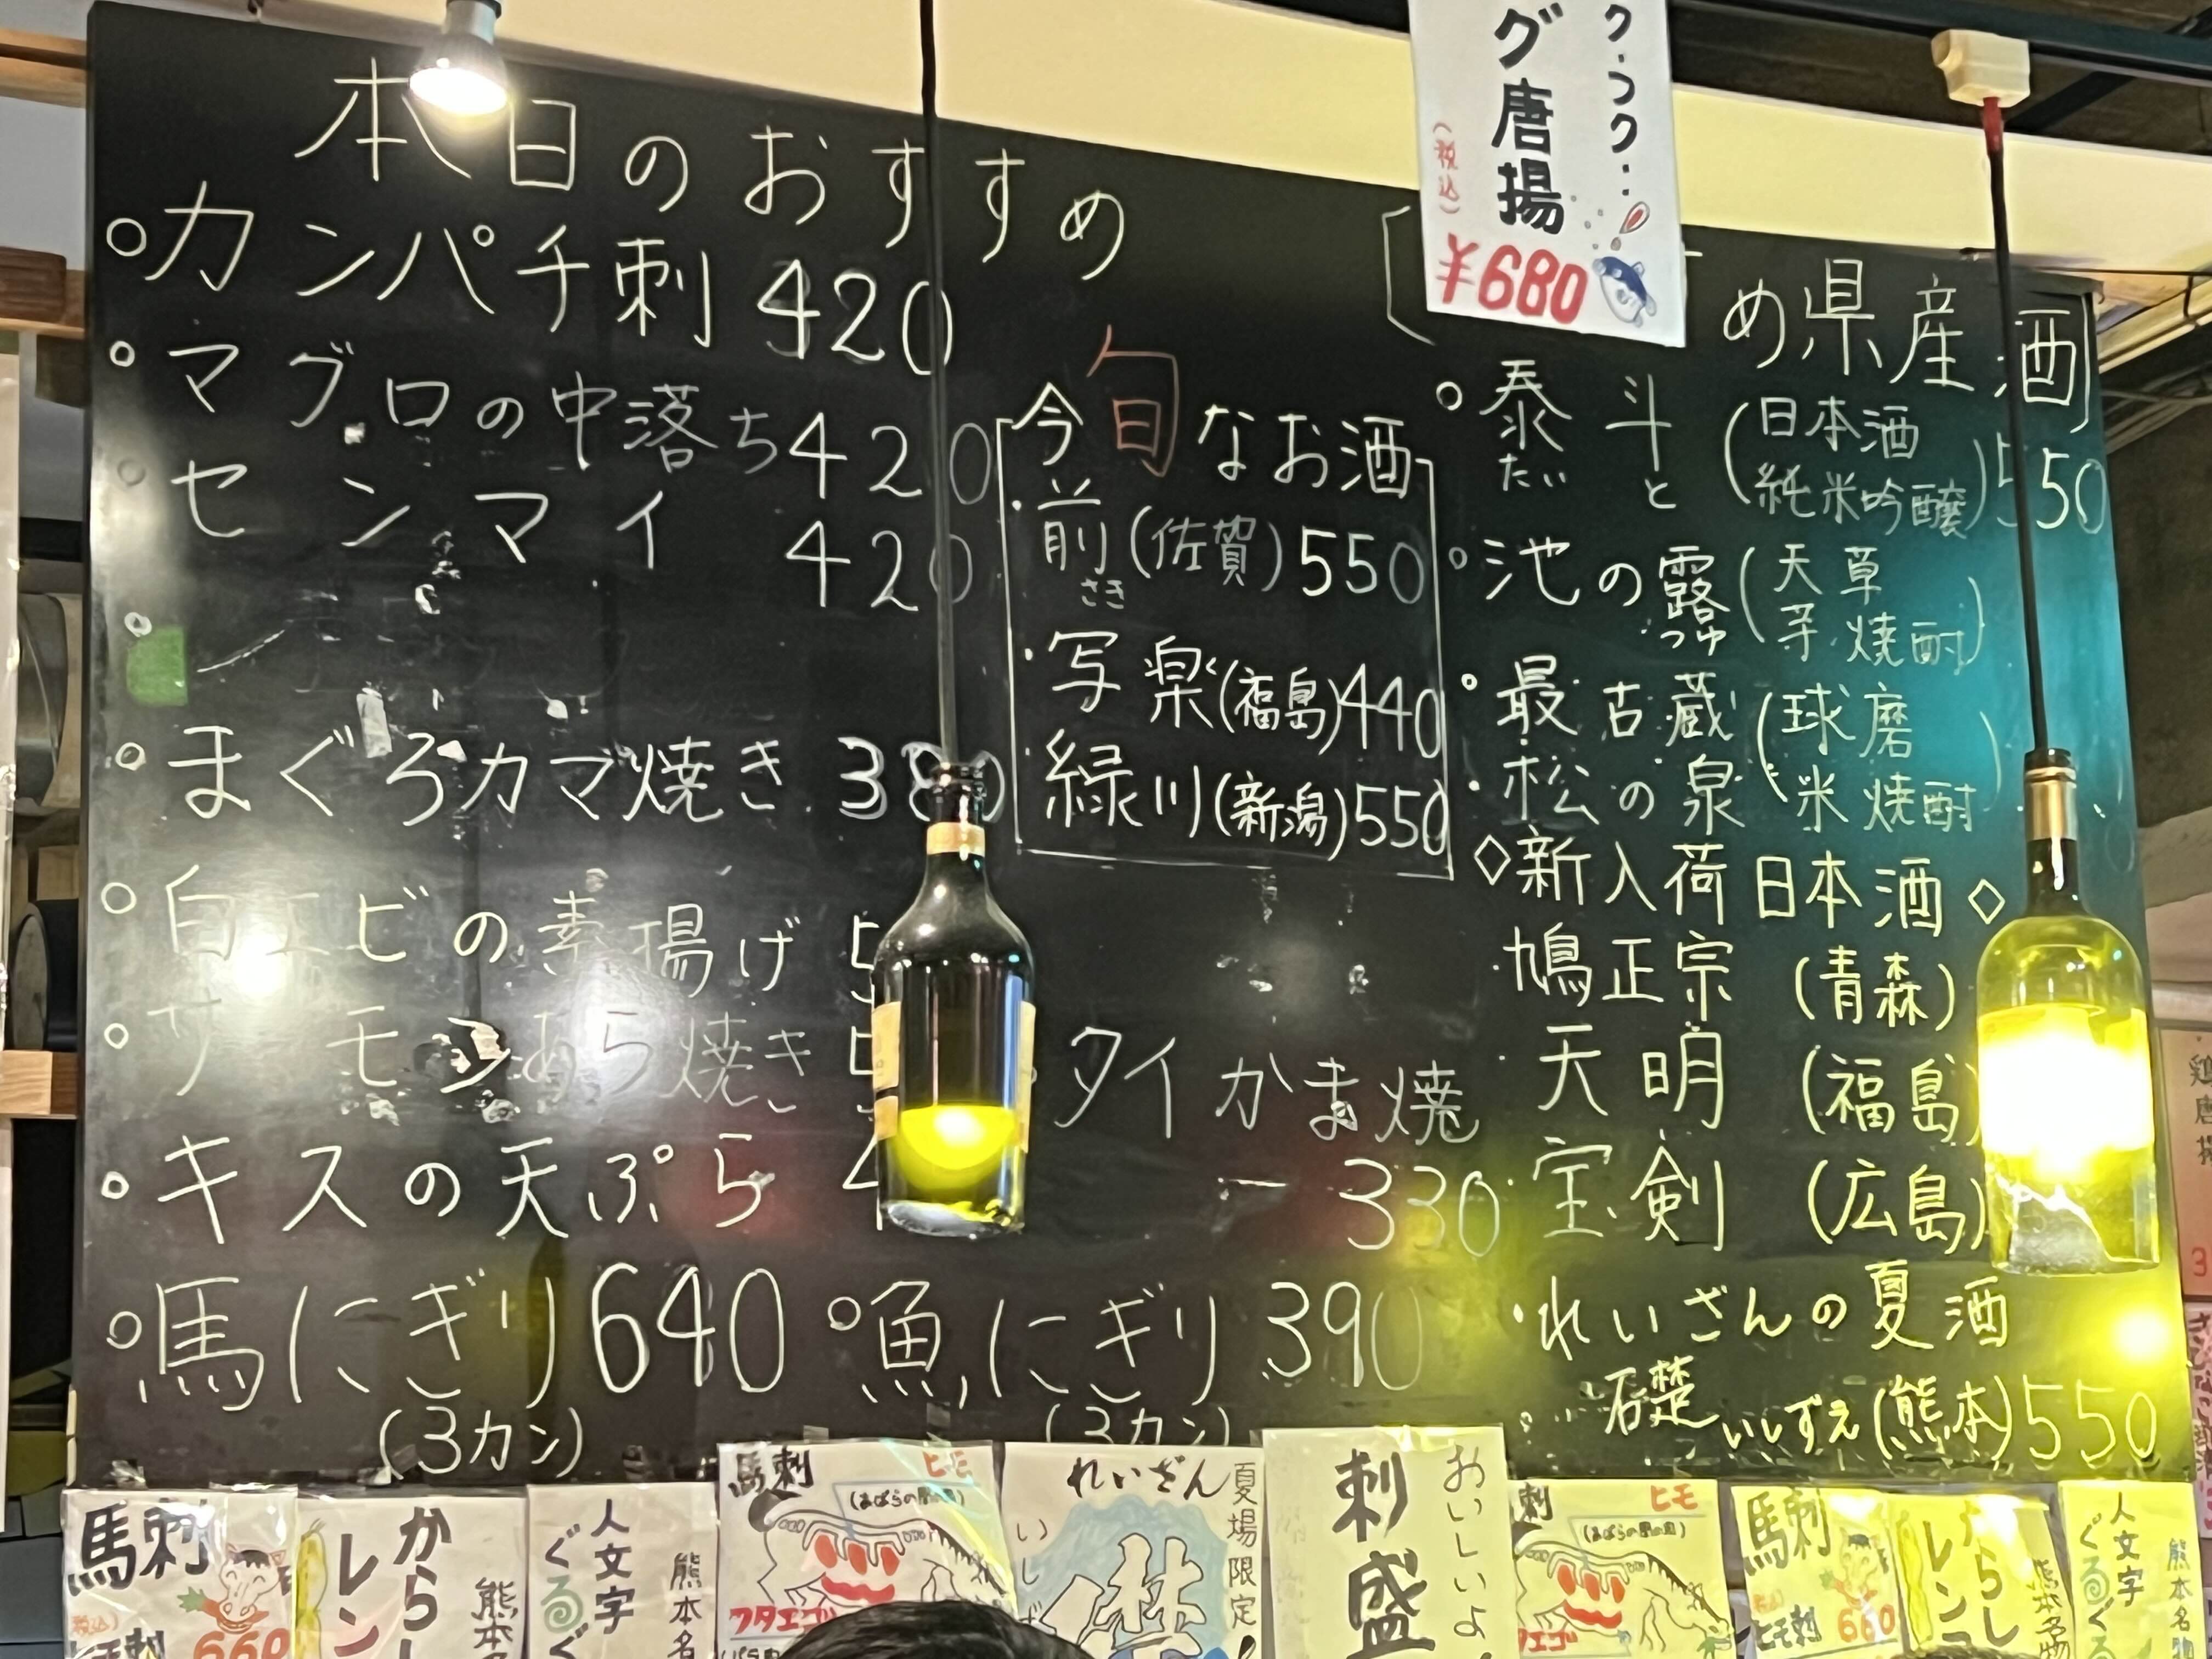 本日のおすすめ
カンパチ刺 420
マグロの中落ち 420
センマイ 420
まぐろカマ焼き 380
白エビの素揚げ 5
サーモンあら焼き
キスの天ぷら 4
馬にぎり 640
(3カン)
魚にぎり 390
(3カン)
今旬なお酒
前(佐賀)550
さき
写楽(福島)440
緑川(新潟)550
タイかま焼
330
ク・つク・・
グ唐揚
(税込)
¥680
め県産酒
泰斗(日本酒 純米吟醸)550
たいと
池の露(天草 芋焼酎)
つゆ
最古蔵(球磨
松の泉 米焼酎)
◇新入荷日本酒◇
鳩正宗 (青森)
天明 (福島)
宝剣 (広島)
れいざんの夏酒
石楚 いしずえ(熊本)550
馬刺
(税込)
ヒモ刺
660
から
レン
熊本名
人文字
ぐるぐ
熊本名
馬刺
ヒモ
(あばらの間の肉)
フタエゴ
れいざん
夏場限定
いし
礎
刺盛
おいしいよ
刺
ヒモ
(あばらの間の肉)
フタエゴ
馬刺
(税込)
ヒモ刺
660
からし
レン
熊本名物
人文字
ぐるぐ
熊本名物